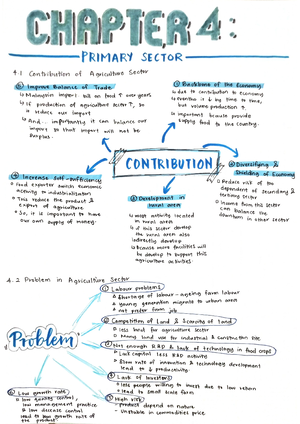 CHAPTER 4:
PRIMARY SECTOR
4.1 Contribution of Agriculture Sector
Improve Balance of Trade
Malaysia import bill on food ↑ over years
If production of agriculture sector ↑, so
reduce our import
And.. importantly it can balance our
import so that import will not be
Backbone of the Economy
due to contribution to economy
by time to time,
but volume production ↑.
important because provide
supply food to the country.
CONTRIBUTION
Increase Self-sufficiency
Food exporter switch economic
activity to industrialization
This reduce the product &
export of agriculture
So, it is important to have
our own supply of money.
Development in
rural area
Most activity located
in rural area
If this sector develop
the rural area also
indirectly develop
Because more facilities will
be develop to support this
agriculture activities.
Diversifying &
of Economy
Reduce risk of the
dependent of secondary &
tertiary sector
Income from this sector
can balance the
downturn in other sector
4.2 Problem in Agriculture Sector
Problem
① Labour problems
Shortage of labour - ageing farm labour
young generation migrate to urban area
not prefer farm job
② Competition of Land & Scarcity of Land
less land for agriculture sector
land use for industrial & construction site
③ Not enough R&D & lack of technology in food crops
Lack capital less R&D activity
Slow rate of innovation & technology development
lead to ↓ productivity
④ Lack of Investors
less people willing to invest due to low return
lead to small scale farm
⑤ High risk
product depend on nature
Unstable in commodities price
⑥ Low growth rate
low quality control,
low management practice
& low disease control
lead to low growth rate of
the product